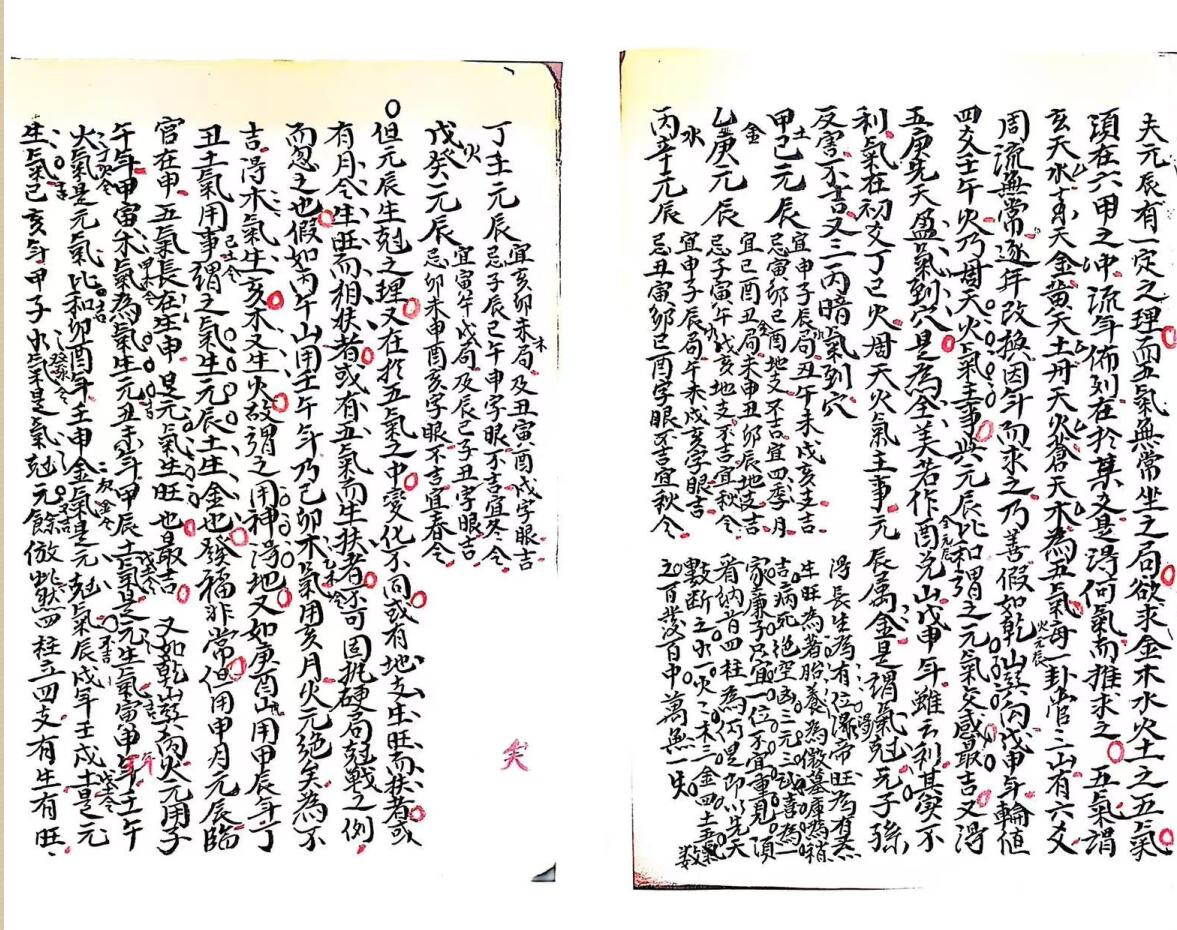 夫元辰有一定之理而五氣無常坐之局欲求金木水火土之五氣
須在六甲之冲流年佈列在於某爻是得何氣而推求之五氣謂
玄天水素天金黄天土丹天火蒼天木為五氣每一卦管三山有六爻
周流無常逐年改換因年而求之乃善假如乾山巽向戊申年輪值
火元辰
四爻壬午火乃丹天火氣主事與元辰比和謂之元氣交感最吉又得
五庚先天盈氣到穴是為全美若作酉兑山戊申年雖云利其实不
金元辰
利氣在初爻丁巳火丹天火氣主事元辰属金是謂氣尅元子孫
反害不吉又二丙暗氣到穴
土
甲己元辰
宜申子辰局丑午未戌亥支吉
忌寅卯巳酉地支不吉宜四季月
金
乙庚元辰
宜巳酉丑局未申丑卯辰地支吉
忌子寅午戌亥地支不吉宜秋令
水
丙辛元辰
宜申子辰局午未戌亥字眼吉
忌丑寅卯巳酉字眼不吉宜秋令
得長生為有位禄帝旺為有炁
生旺為著胎養為微墓庫為稍
吉病死絶空凶三元武喜為一
家廉子只宜一位不宜重見頂
看纳音四柱為巧里即以先天
數断之水一火二木三金四土五氣數
五百發百中萬無一失
丁壬元辰
宜亥卯未局及丑寅酉戌字眼吉
忌子辰巳午申字眼不吉宜冬令
火
戊癸元辰
宜寅午戌局及辰巳子丑字眼吉
忌卯未申酉亥字眼不吉宜春令
但元辰生尅之理又在於五氣之中變化不同或有地支生旺而扶者或
有月令生旺而相扶者或有五氣而生扶者不可固执硬局尅戰之例
而忽之也假如丙午山用壬午年乃己卯木氣用亥月火元絶矣為不
吉得木氣生亥木又生火故謂之用神得地又如庚酉山用甲辰年丁
丑土氣用事謂之氣生元辰土生金也發福非常但用甲月元辰臨
官在申五氣長在生申是元氣生旺也最吉又如乾山巽向火元用子
午年甲寅木氣為氣生元丑未年甲辰土氣是元生氣寅申年壬午
火氣是元氣比和卯酉年壬申金氣是元尅氣辰戌年壬戌土是元
生氣巳亥年甲子水氣是氣尅元餘倣此然四柱立四支有生有旺
矣